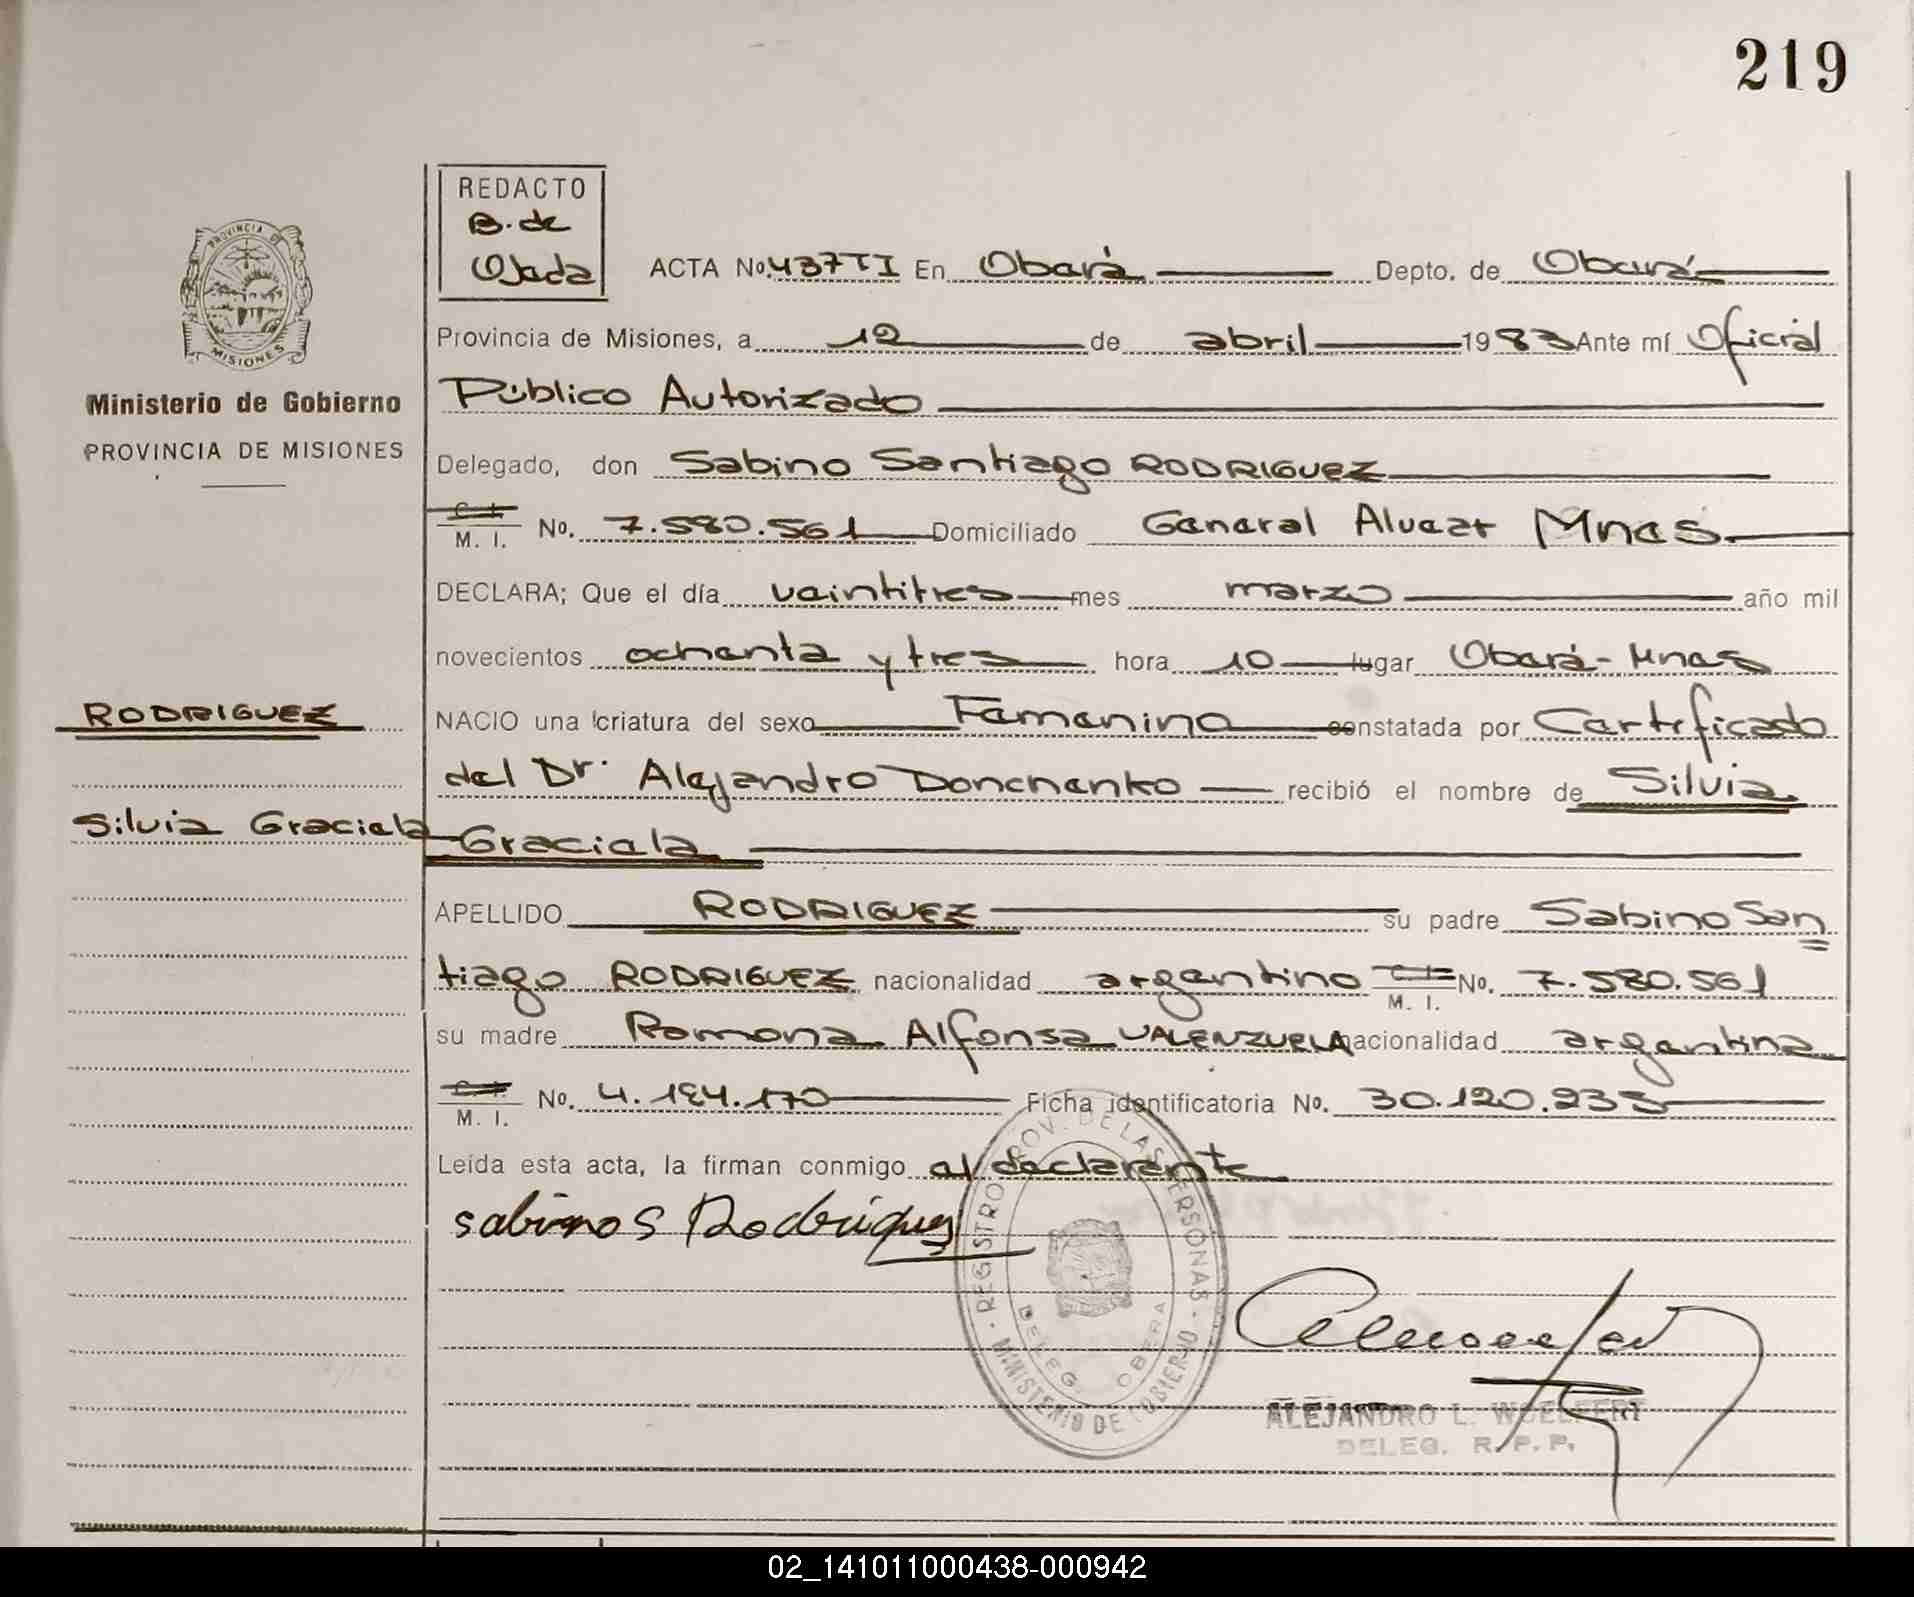 219
REDACTO
B. de
Ojeda
ACTA No. 437 TI En Oberá Depto. de Oberá
PROVINCIA DE
MISIONES
Provincia de Misiones, a 12 de abril 1983 Ante mí Oficial
Ministerio de Gobierno
Público Autorizado
PROVINCIA DE MISIONES
Delegado, don Sabino Santiago RODRIGUEZ
C. I.
M. I. No. 7.580.561 Domiciliado General Alvear Mnes
DECLARA; Que el día veintitres mes marzo año mil
novecientos ochenta y tres hora 10 lugar Oberá - Mnes
RODRIGUEZ
NACIO una criatura del sexo Femenino constatada por Certificado
del Dr. Alejandro Donchenko recibió el nombre de Silvia
Silvia Graciela
Graciela
APELLIDO RODRIGUEZ su padre Sabino San
tiago RODRIGUEZ nacionalidad argentino C. I. M. I. No. 7.580.561
su madre Ramona Alfonsa VALENZUELA nacionalidad argentina
C. I.
M. I. No. 4.184.170 Ficha identificatoria No. 30.120.233
Leída esta acta, la firman conmigo el declarante
Sabino S Rodriguez
REGISTRO PROV. DE LAS PERSONAS
MINISTERIO DE GOBIERNO
DELEG. OBERA
ALEJANDRO L. WOELFERT
DELEG. R. P. P.
02_141011000438-000942